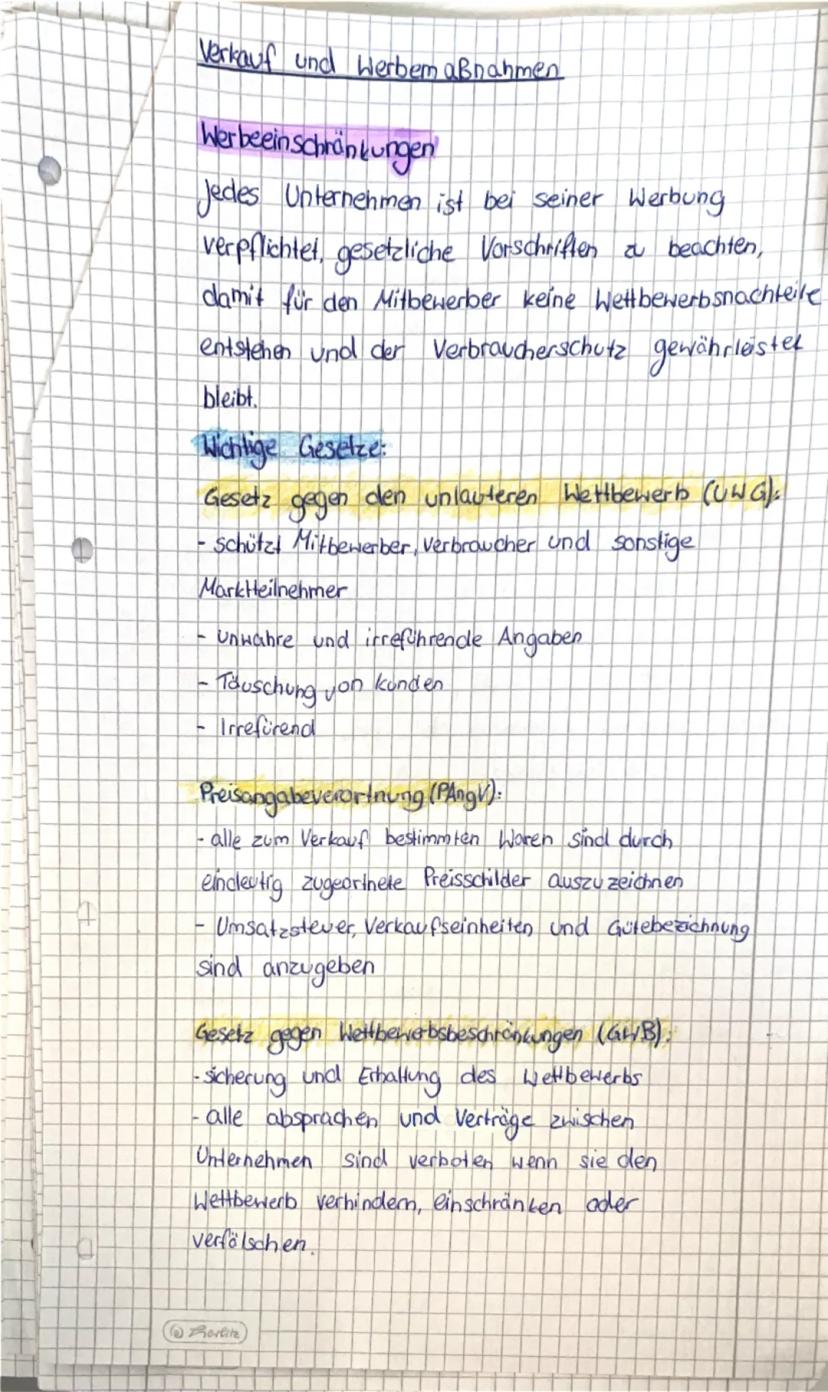 Verkauf und Werbemaßnahmen
Werbeeinschränkungen
Jedes Unternehmen ist bei seiner Werbung
verpflichtet, gesetzliche Vorschriften zu beachten,
damit für den Mitbewerber keine Wettbewerbsnachteile
entstehen und der Verbraucherschutz gewährleistet
bleibt.
Wichtige Gesetze:
Gesetz gegen den unlauteren Wettbewerb (UWG):
- schützt Mitbewerber, Verbraucher und sonstige
Marktteilnehmer
- unwahre und irreführende Angaben
- Täuschung von kunden
- Irrefürend
Preisangabeverortnung (PAngV):
- alle zum Verkauf bestimmten Waren sind durch
eindeutig zugeortnete Preisschilder auszuzeichnen
- Umsatzsteuer, Verkaufseinheiten und Gütebezichnung
sind anzugeben
Gesetz gegen Wettbewerbsbeschränkungen (GWB):
- sicherung und Erhaltung des Wettbewerbs
- alle absprachen und Verträge zwischen
Unternehmen sind verboten wenn sie den
Wettbewerb verhindern, einschränken oder
verfälschen.
herlitz